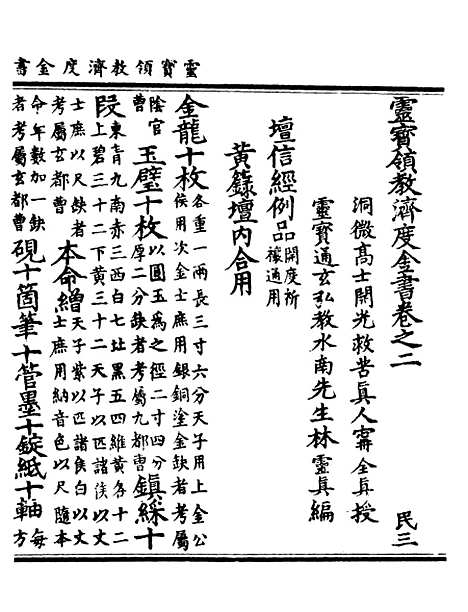 靈寶領教濟度金書
靈寶領教濟度金書卷之二 民三
洞微高士開光救苦眞人甯全真授
靈寶通玄弘教水南先生林靈真編
壇信經例品 開度祈禳通用
黃籙壇內合用
金龍十枚 各重一兩長三寸六分天子用上金公侯用次金士庶用銀銅塗金缺者考屬
陰官曹 玉璧十枚 以圓玉爲之徑二寸四分厚二分缺者考屬九都曹 鎮綵十
段 東青九南赤三西白七北黑五四維黃各十二上碧三十二下黃三十二天子以匹諸侯以丈
士庶以尺缺者考屬玄都曹 本命繒 天子紫以匹諸侯白以丈士庶用納音色以尺隨本
命年數加一缺者考屬玄都曹 硯十箇筆十管墨十錠紙十軸 每方